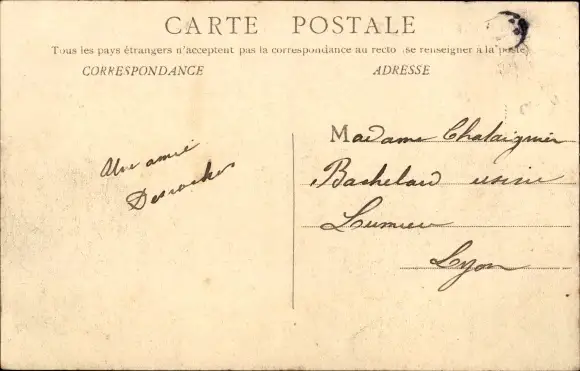 CARTE POSTALE
Tous les pays étrangers n'acceptent pas la correspondance au recto (se renseigner à la poste)
CORRESPONDANCE
ADRESSE
Une amie
Desroches
Madame Chataignier
Bachelard usine
Lumière
Lyon